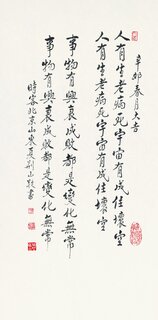 辛卯春月大吉
人有生老病死宇宙有成住壞空
人有生老病死宇宙有成住壞空
事物有興衰成敗都是變化無常
事物有興衰成敗都是變化無常
時客北京山東